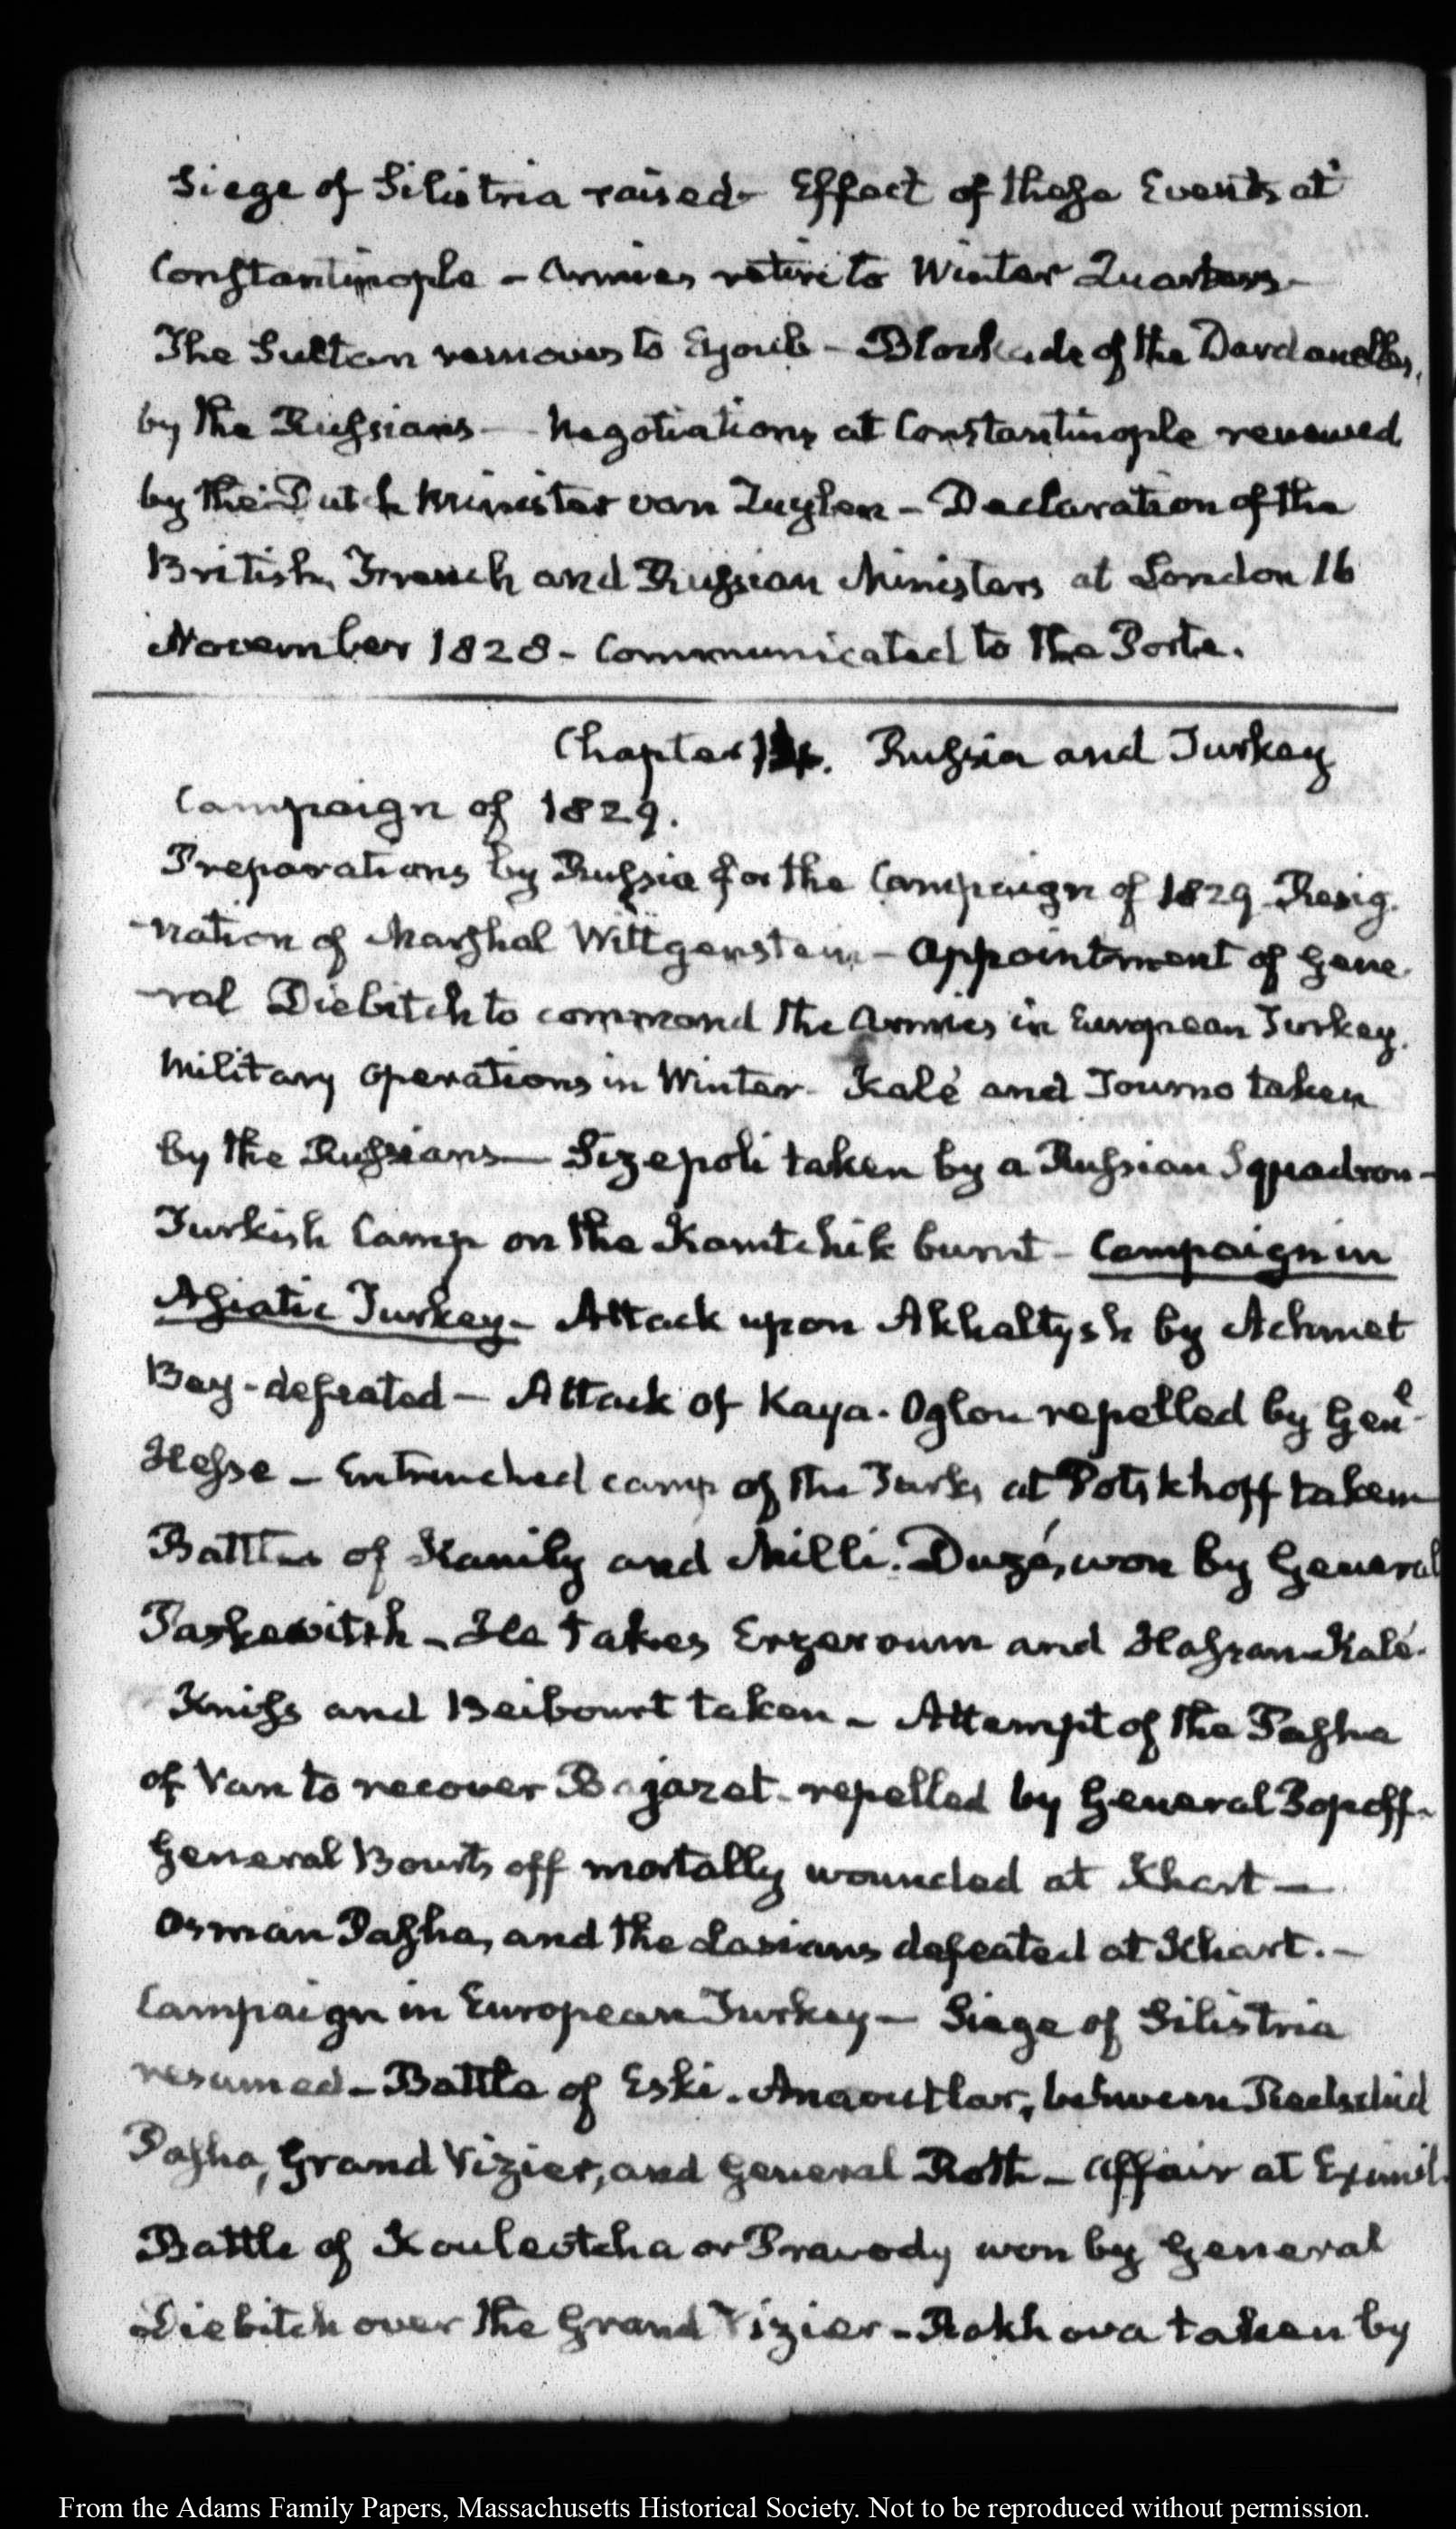 Siege of Silistria raised - Effect of these Events at
Constantinople - Armies retire to Winter Quarters -
The Sultan removes to Eyoub - Blockade of the Dardanelles,
by the Russians - Negotiations at Constantinople renewed
by the Dutch Minister van Zuylen - Declaration of the
British, French and Russian Ministers at London 16
November 1828 - Communicated to the Porte.
Chapter . Russia and Turkey
Campaign of 1829.
Preparations by Russia for the Campaign of 1829 - Resig-
-nation of Marshal Wittgenstein - Appointment of Gene-
-ral Diebitch to command the Armies in European Turkey.
Military operations in Winter - Kalé and Tourno taken
by the Russians - Sizepoli taken by a Russian Squadron -
Turkish Camp on the Kamtchik burnt - Campaign in
Asiatic Turkey - Attack upon Akhaltysh by Achmet
Bey - defeated - Attack of Kaya-Oglou repelled by Genl
Hesse - Entrenched camp of the Turks at Potskhoff taken
Battles of Kanily and Milli-Duzé, won by General
Paskewitch - He takes Erzeroum and Hassan-Kalé -
Kniss and Beibourt taken - Attempt of the Pasha
of Van to recover Bajazet - repelled by General Popoff -
General Bourtsoff mortally wounded at Khart -
Osman Pasha, and the Lasians defeated at Khart. -
Campaign in European Turkey - Siege of Silistria
resumed - Battle of Eski-Arnaoutlar, between Redschid
Pasha, Grand Vizier, and General Roth - Affair at
Battle of Koulevtcha or Pravody won by General
Diebitch over the Grand Vizier - Rakhova taken by
From the Adams Family Papers, Massachusetts Historical Society. Not to be reproduced without permission.